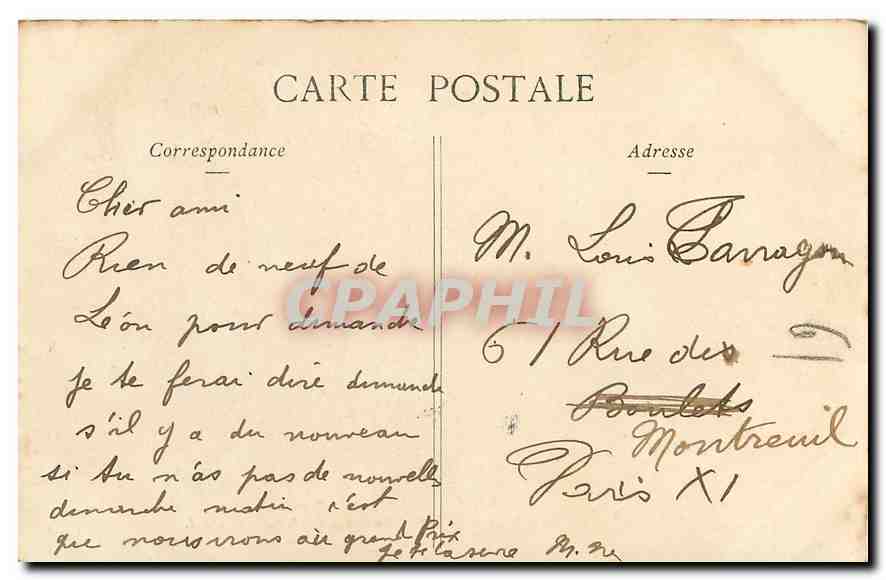 CARTE POSTALE
Correspondance
Adresse
Cher ami
Rien de neuf de
Léon pour dimanche
je te ferai dire dimanche
s'il y a du nouveau
si tu n'as pas de nouvelle
dimanche matin c'est
que nous irons au grand Prix
je te la serre
M. Louis Tarragon
61 Rue des
Boulets
Montreuil
Paris XI
19
CPAPHIL